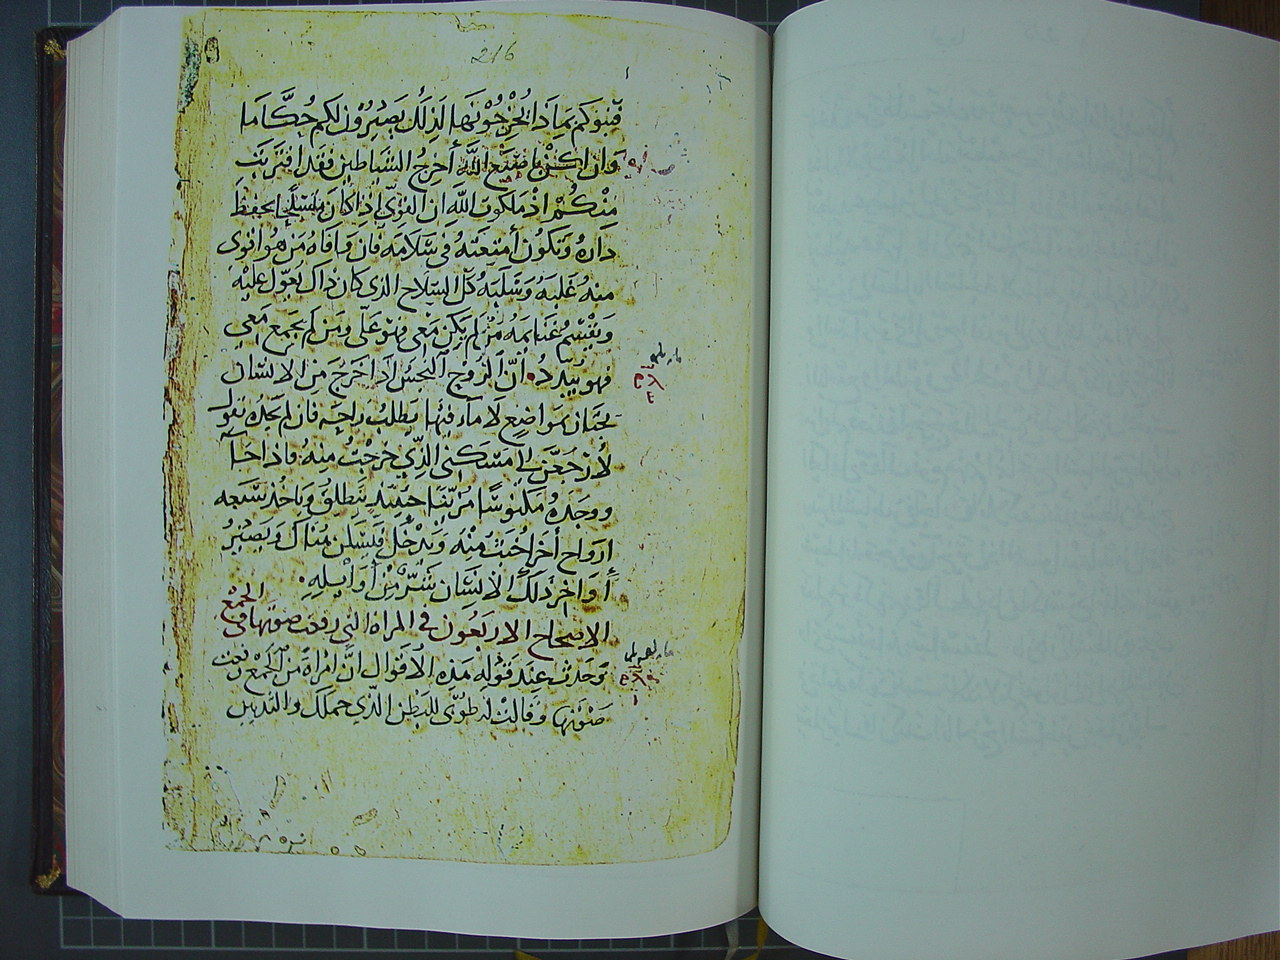 216
فبنوكم بماذا يُخْرجُونَها لذلك يصيرون لكم حكَّاما
وان اكن باصبع الله أخرج الشياطين فقد اقتربت
منكُم اذْ ملكوت الله ان القوي اذا كان متسلحا يحفظ
داره وتكون أمتعته في سَلامه فان وافاه من هو اقوى
منه غلبه وسَلبه كل السلاح الذى كان ذاك يعول عليه
ويقسم غنايمه من لم يكن معى فهو علىّ ومن لم يجمع معى
فهو يبدده انّ الروح النجس اذا خرج من الانسان
يجتاز بمواضع لا ماء فيها يطلب راحة فان لم يجده يقول
لأرجعنّ الى مسكنى الذي خرجْتُ منه واذا جاء
ووجده مكنوسًا مزيّنا حينئذ ينطلق وياخذ سبعه
ارواح أخر اخبث منه ويدخل يسكن هناك ويصير
أواخر ذلك الانسان شرّ من أوايله
الاصحاح الاربعون في المراه التى رفعت صوتها في الجمع
وحدث عند قوله هذه الأقوال انّ امراة من الجمع رفعت
صوتها وقالت له طوبى للبطن الذّي حملك والثديين